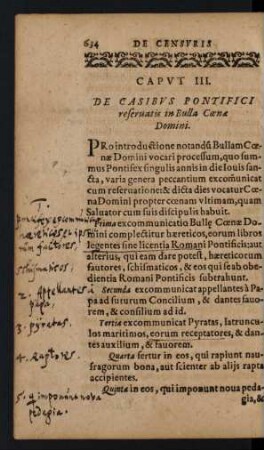 634 DE CENSVRIS
CAPVT III.
DE CASIBVS PONTIFICI
reseruatis in Bulla Cœnæ
Domini.
PRo introductione notandũ Bullam Cœ-
næ Domini vocari processum, quo sum-
mus Pontifex singulis annis in die Iouis san-
cta, varia genera peccantium excõmunicat
cum reseruatione: & dicta dies vocatur Cœ-
na Domini propter cœnam vltimam, quam
Saluator cum suis discipulis habuit.
Prima excommunicatio Bullę Cœnæ Do-
mini complectitur hæreticos, eorum libros
legentes sine licentia Romani Pontificis; aut
alterius, qui eam dare potest, hæreticorum
fautores, schismaticos, & eos qui se ab obe-
dientia Romani Pontificis subtrahunt.
Secunda excommunicat appellantes à Pa-
pa ad futurum Concilium, & dantes fauo-
rem, & consilium ad id.
Tertia excommunicat Pyratas, latruncu-
los maritimos, eorum receptatores, & dan-
tes auxilium, & fauorem.
Quarta fertur in eos, qui rapiunt nau-
fragorum bona, aut scienter ab alijs rapta
accipientes.
Quinta in eos, qui imponunt noua peda-
gia, &
fautores,
schismaticos,
2. Appellantes à
papa,
3. pyratas.
4. Raptores.
5. q̃ imponũt nova
pedagia.